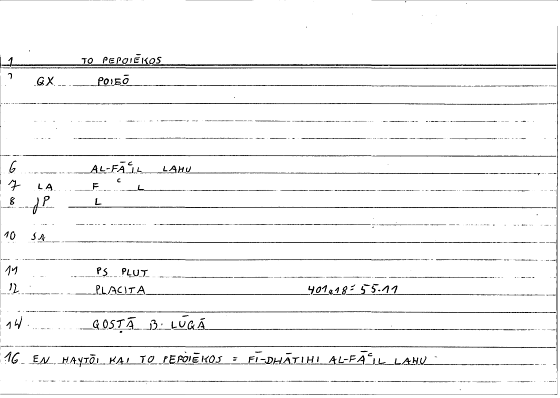 1 TO PEPOIĒKOS
GX POIEŌ
6 AL-FĀʿIL LAHU
7 LA F ʿ L
8 JP L
10 SA
11 PS PLUT
12 PLACITA 401,18 = 55.11
14 QOSṬĀ B. LŪQĀ
16 EN HAYTŌI KAI TO PEPOIĒKOS = FĪ-DHĀTIHI AL-FĀʿIL LAHU